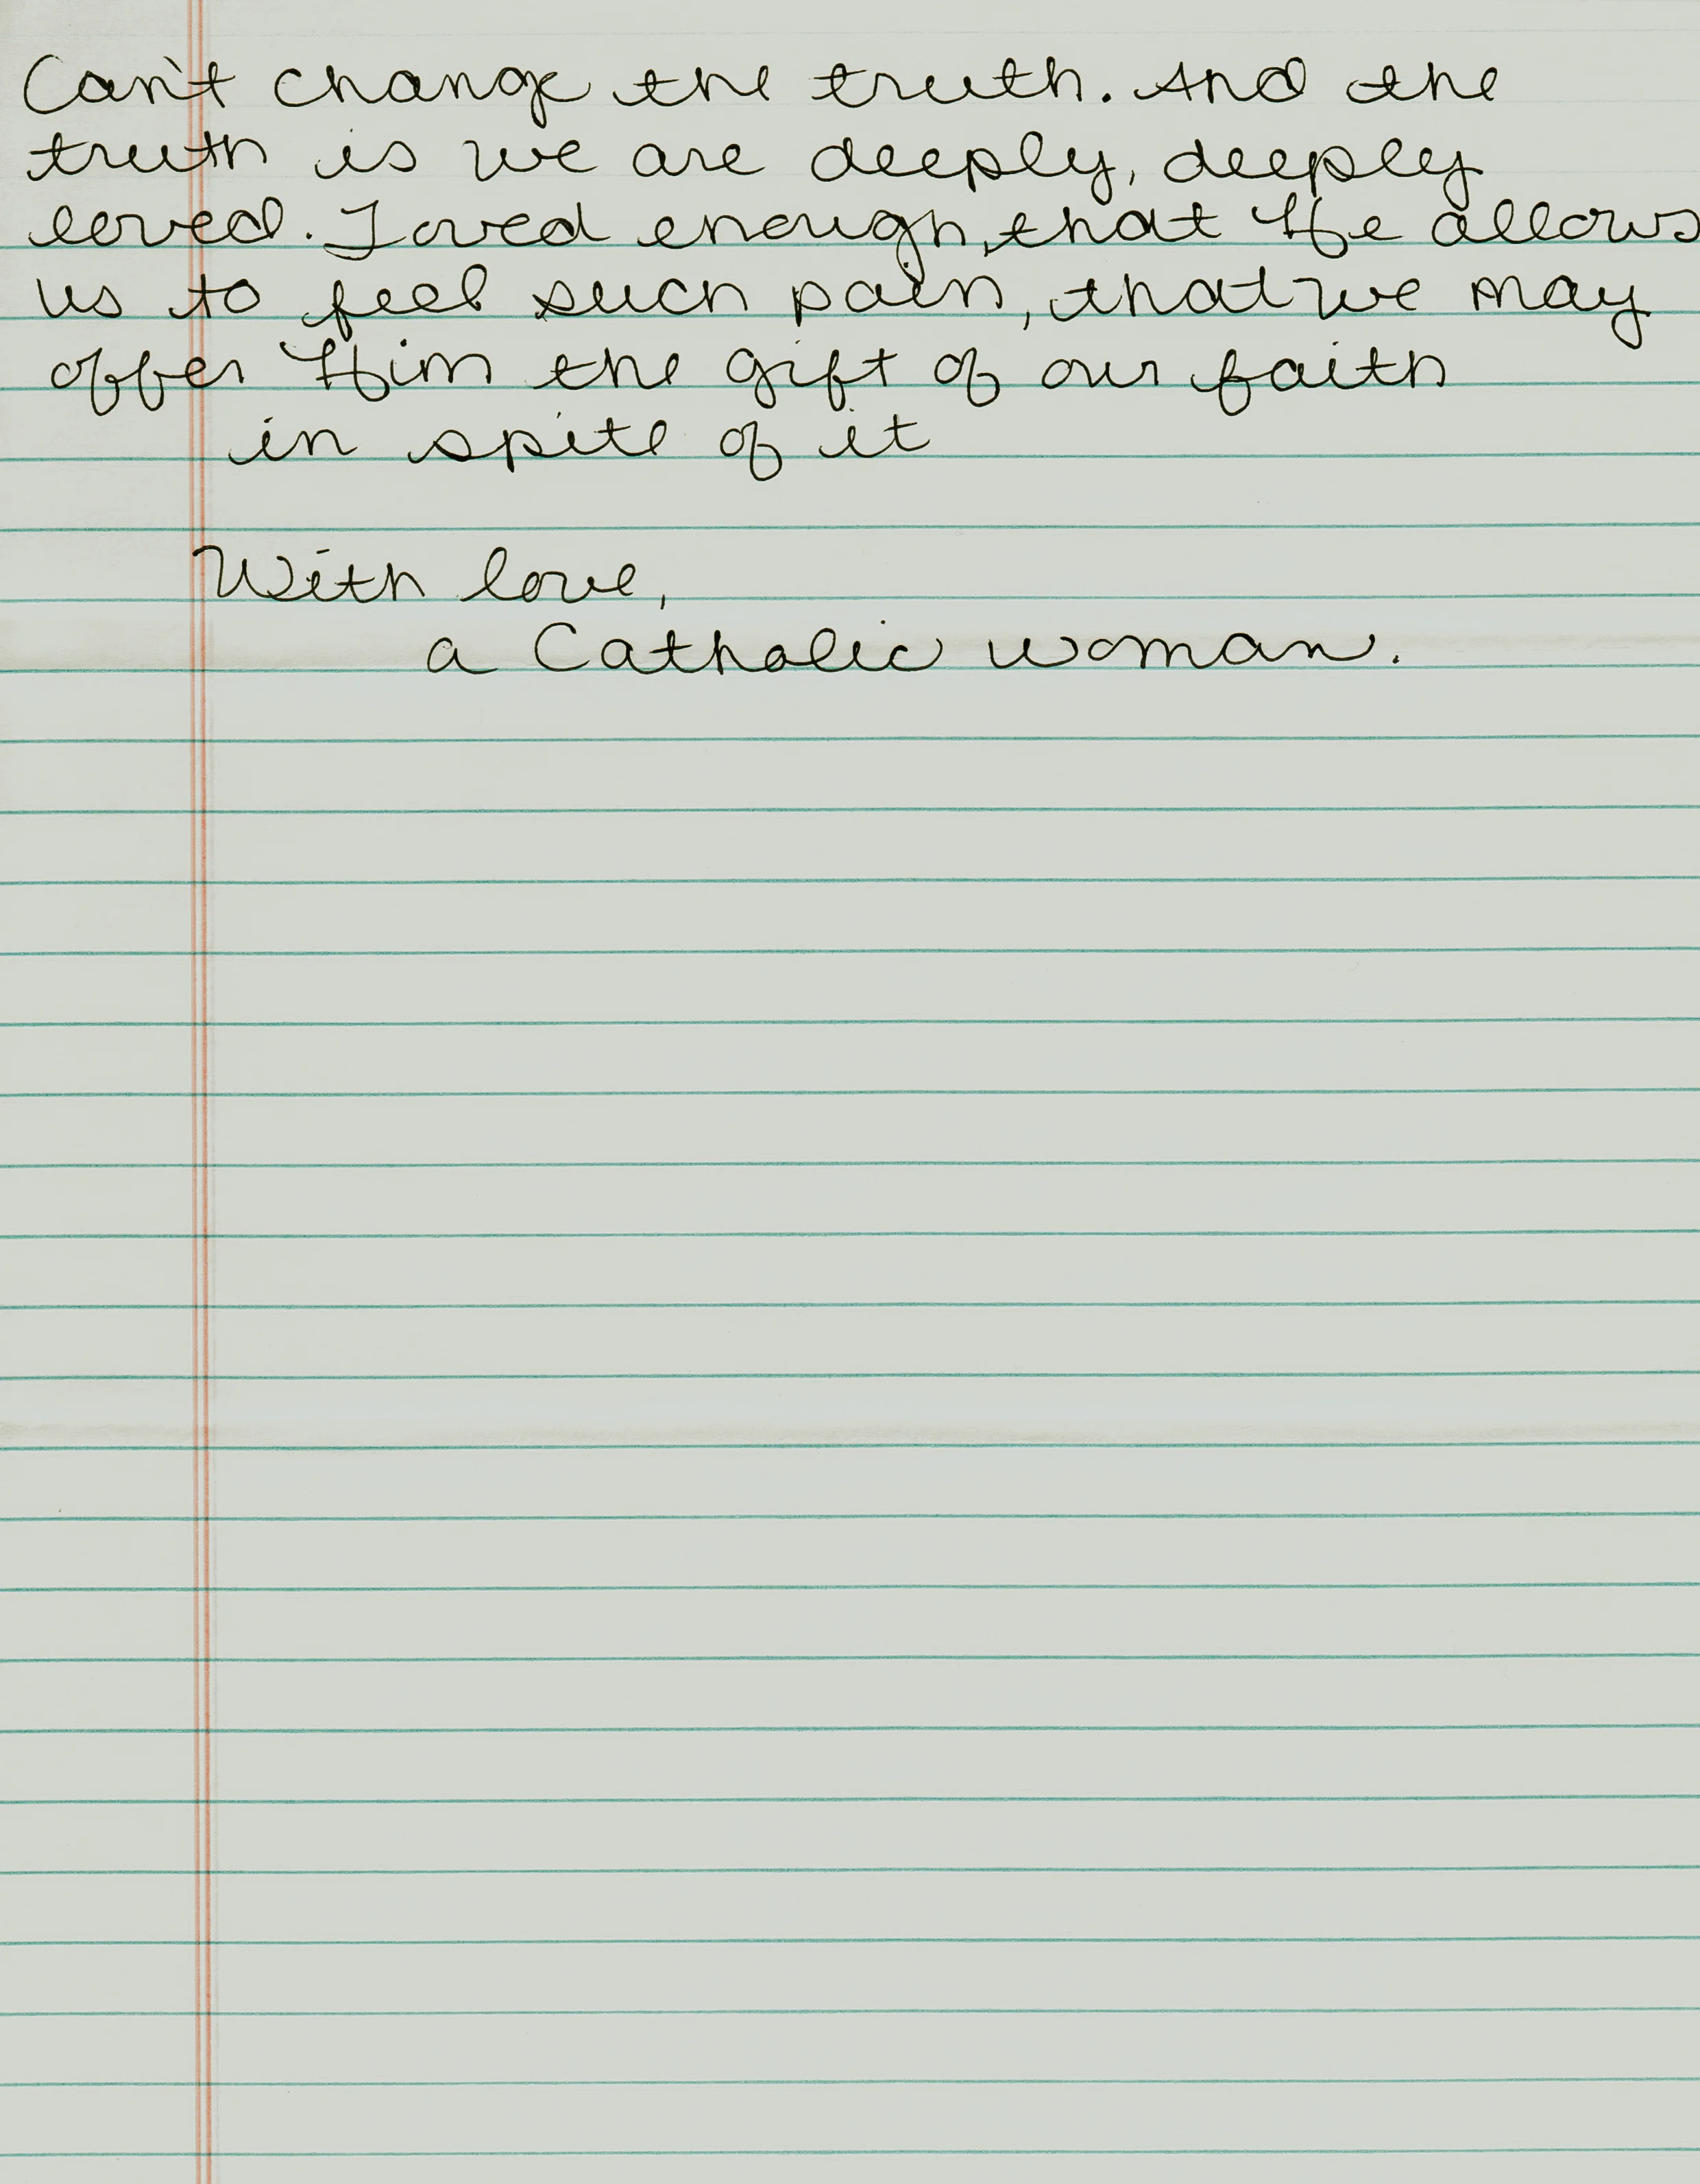 Can't change the truth. And the
truth is we are deeply, deeply
loved. Loved enough, that He allows
us to feel such pain, that we may
offer Him the gift of our faith
in spite of it
With love,
a Catholic woman.